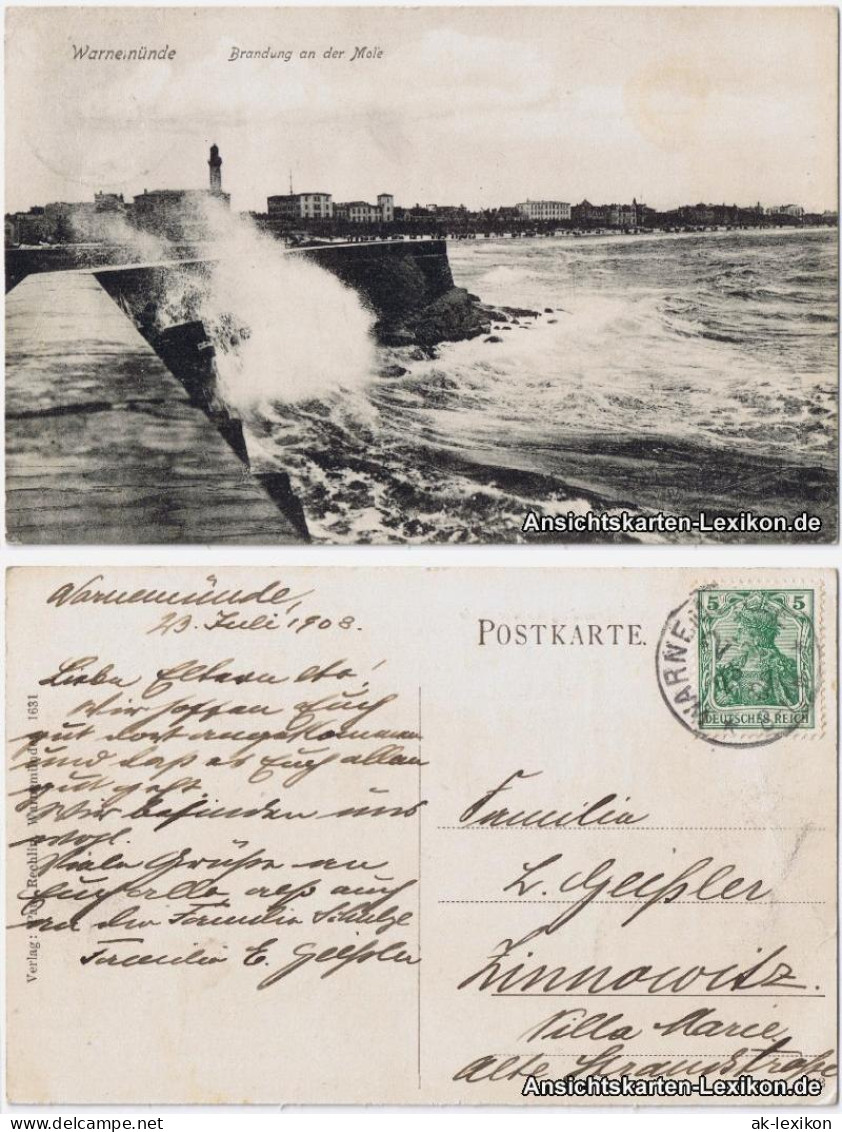 Warnemünde Brandung an der Mole
Ansichtskarten-Lexikon.de
Warnemünde,
23. Juli 1908.
Liebe Eltern etc!
Wir hoffen Euch
gut dort angekommen
und daß es Euch allen
gut geht.
Wir befinden uns
wohl.
Viele Grüße an
Euch alle als auch
an die Familie Schulze
Familie E. Geißler
Verlag: Rechlin, Warnemünde 1631
POSTKARTE.
5 5
DEUTSCHES REICH
WARNEM
Familie
L. Geißler
Zinnowitz.
Villa Marie
Alte Strandstraße
Ansichtskarten-Lexikon.de
ak-lexikon